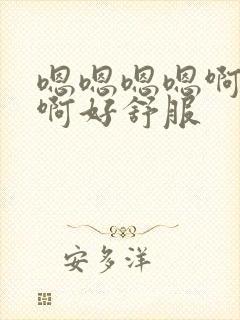 嗯嗯嗯嗯啊
啊好舒服
安多洋